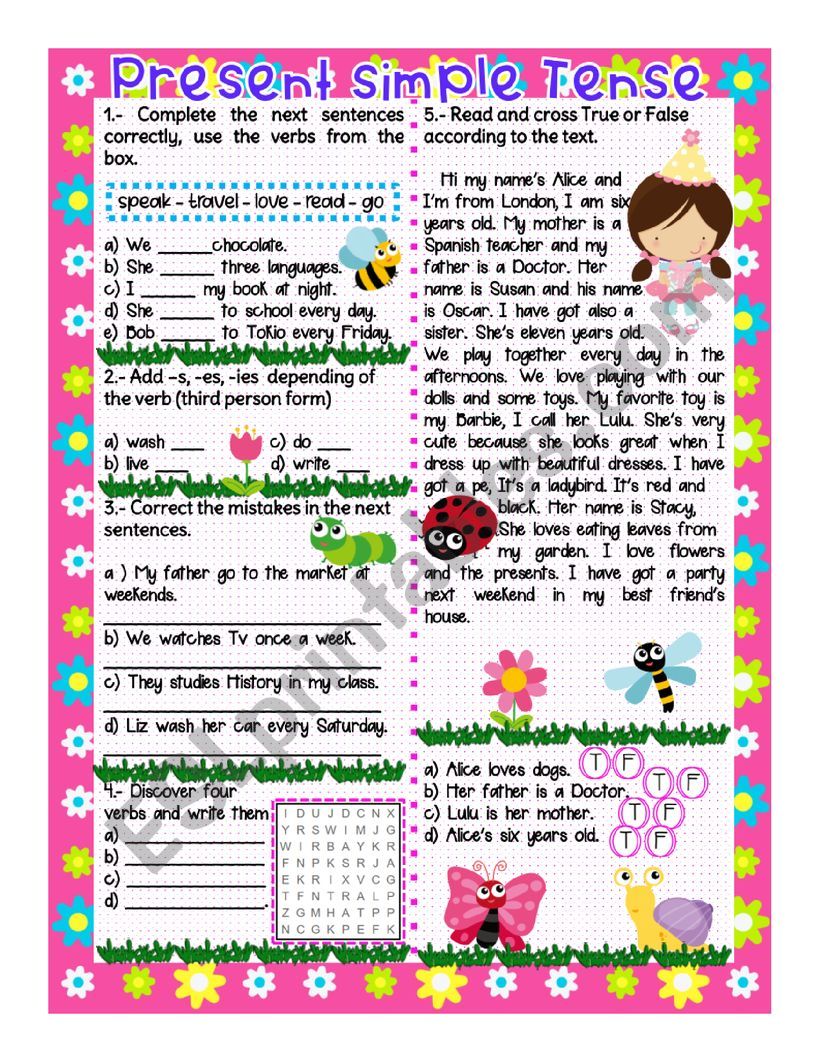 Present Simple Tense
1.- Complete the next sentences
correctly, use the verbs from the
box.
speak - travel - love - read - go
a) We ______chocolate.
b) She ______ three languages.
c) I ______ my book at night.
d) She ______ to school every day.
e) Bob ______ to Tokio every Friday.
2.- Add -s, -es, -ies depending of
the verb (third person form)
a) wash ____ c) do ____
b) live ____ d) write ____
3.- Correct the mistakes in the next
sentences.
a ) My father go to the market at
weekends.
b) We watches Tv once a week.
c) They studies History in my class.
d) Liz wash her car every Saturday.
4.- Discover four
verbs and write them
a) ____________
b) ____________
c) ____________
d) ____________.
I D U J D C N X
Y R S W I M J G
W I R B A Y K R
F N P K S R J A
E K R I X V C G
T F N T R A L P
Z G M H A T P P
N C G K P E F K
5.- Read and cross True or False
according to the text.
Hi my name's Alice and
I'm from London, I am six
years old. My mother is a
Spanish teacher and my
father is a Doctor. Her
name is Susan and his name
is Oscar. I have got also a
sister. She's eleven years old.
We play together every day in the
afternoons. We love playing with our
dolls and some toys. My favorite toy is
my Barbie, I call her Lulu. She's very
cute because she looks great when I
dress up with beautiful dresses. I have
got a pe, It's a ladybird. It's red and
black. Her name is Stacy,
She loves eating leaves from
my garden. I love flowers
and the presents. I have got a party
next weekend in my best friend's
house.
a) Alice loves dogs. T F
b) Her father is a Doctor. T F
c) Lulu is her mother. T F
d) Alice's six years old. T F
ESLprintables.com